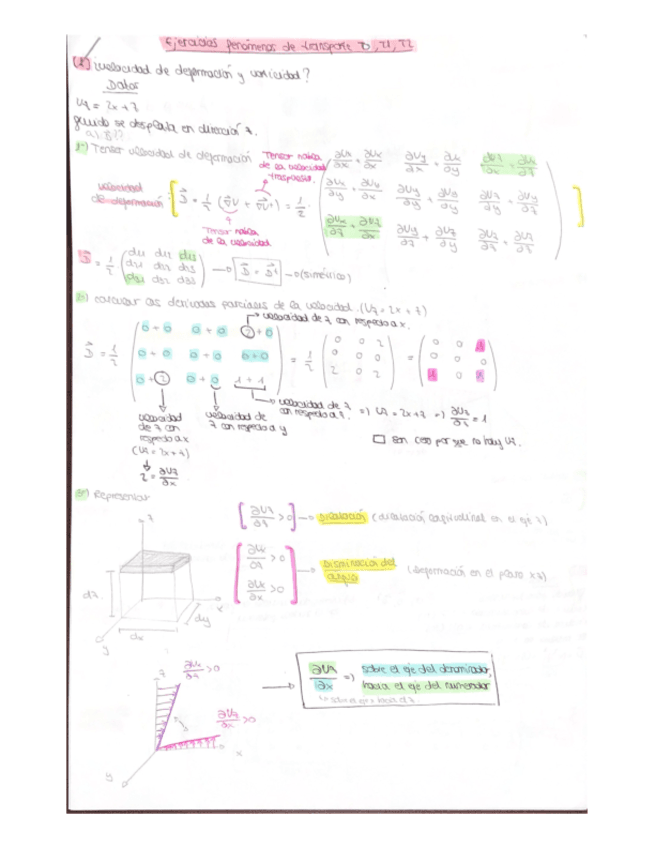 Ejercicios fenómenos de transporte T0, T1, T2
¿velocidad de deformación y vorticidad?
Datos
Uz = 2x + z
fluido se desplaza en dirección z.
1º) Tensor velocidad de deformación
Tensor
de la velocidad
velocidad
de deformación
= 1/2 (∇V + ∇V^t) = 1/2
∂Ux/∂x + ∂Ux/∂x ∂Uy/∂x + ∂Ux/∂y ∂Uz/∂x + ∂Ux/∂z
∂Ux/∂y + ∂Uy/∂x ∂Uy/∂y + ∂Uy/∂y ∂Uz/∂y + ∂Uy/∂z
∂Ux/∂z + ∂Uz/∂x ∂Uy/∂z + ∂Uz/∂y ∂Uz/∂z + ∂Uz/∂z
Tensor
de la velocidad
D = 1/2
d11 d12 d13
d21 d22 d23
d31 d32 d33
D = D^t (simétrico)
2º) calcular las derivadas parciales de la velocidad. (Uz = 2x + z)
velocidad de z con respecto a x.
D = 1/2
0 + 0 0 + 0 2 + 0
0 + 0 0 + 0 0 + 0
0 + 2 0 + 0 1 + 1
= 1/2
0 0 2
0 0 0
2 0 2
=
0 0 1
0 0 0
1 0 1
velocidad de z
con respecto a z. => Uz = 2x + z => ∂Uz/∂z = 1
velocidad
de z con
respecto a x
(Uz = 2x + z)
2 = ∂Uz/∂x
velocidad de
z con respecto a y
son cero porque no hay
3º) Representar
z
dz
dx
dy
x
y
∂Uz/∂z > 0 → Dilatación (dilatación longitudinal en el eje z)
∂Ux/∂z > 0
∂Uz/∂x > 0
Disminución del
ángulo
(deformación en el plano xz)
z
∂Ux/∂z > 0
∂Uz/∂x > 0
x
y
∂Uz/∂x => sobre el eje del denominador,
hacia el eje del numerador